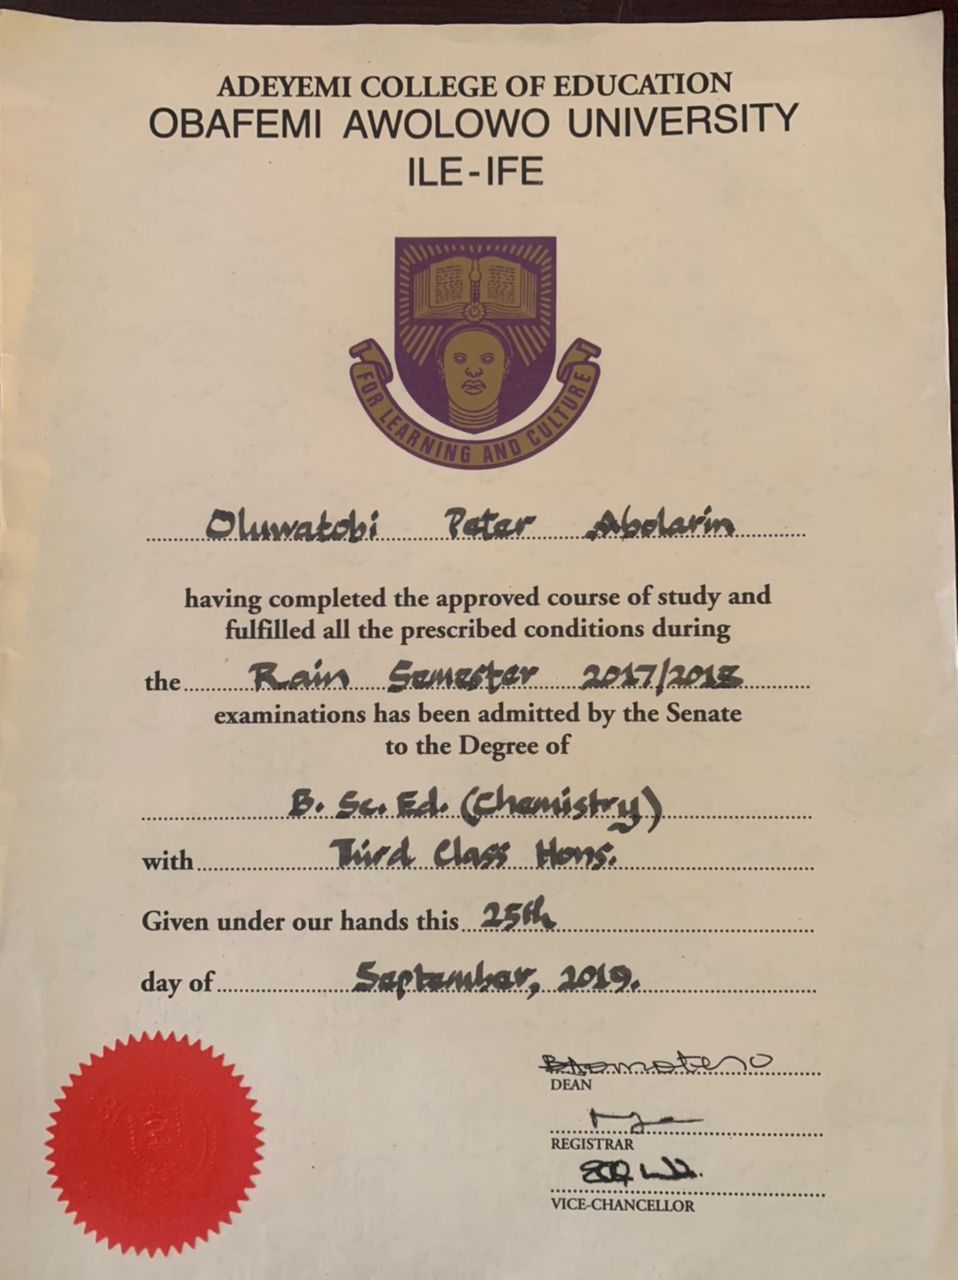 ADEYEMI COLLEGE OF EDUCATION
OBAFEMI AWOLOWO UNIVERSITY
ILE-IFE
FOR LEARNING AND CULTURE
Oluwatobi Peter Abolarin
having completed the approved course of study and
fulfilled all the prescribed conditions during
the Rain Semester 2017/2018
examinations has been admitted by the Senate
to the Degree of
B. Sc. Ed. (Chemistry)
with Third Class Hons.
Given under our hands this 25th
day of September, 2019.
DEAN
REGISTRAR
VICE-CHANCELLOR